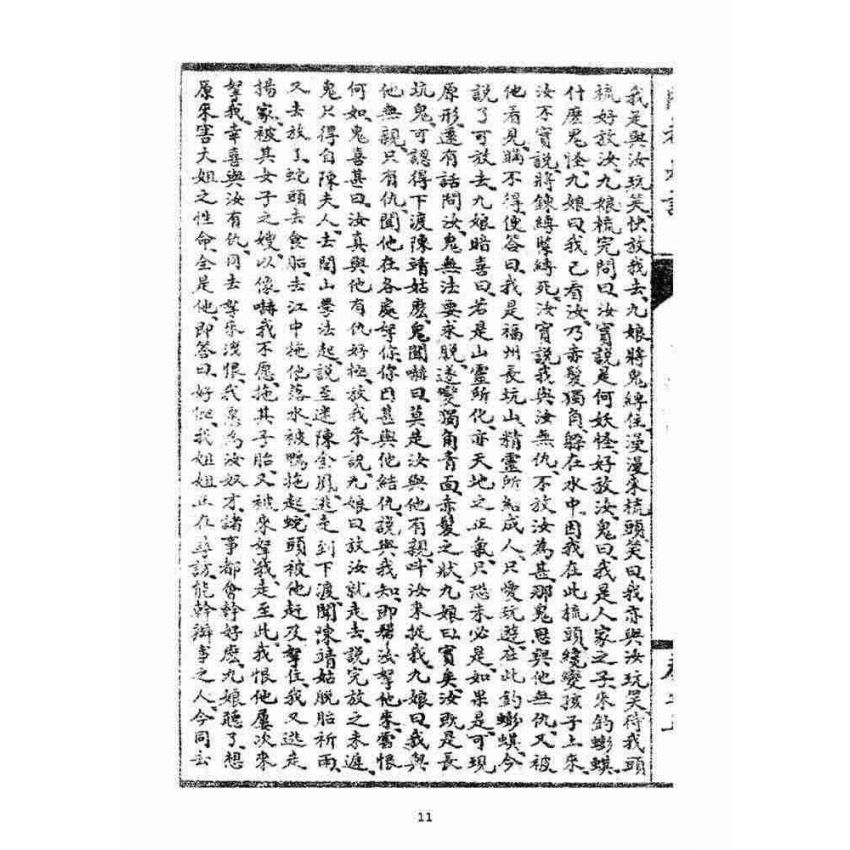 我是與汝玩笑快放我去九娘將鬼縛住漫漫來梳頭笑曰我亦與汝玩笑待我頭
梳好放汝九娘梳完問曰汝實說是何妖怪好放汝鬼曰我是人家之子來釣蟛蜞
什麽鬼怪九娘曰我已看汝乃赤髮獨角躲在水中因我在此梳頭纔變孩子上來
汝不實說將鍊縛緊縛死汝實說我與汝無仇不放汝為甚那鬼思與他無仇又被
他看見瞞不得便答曰我是福州長坑山精靈所結成人只愛玩遊在此釣蟛蜞今
說了可放去九娘暗喜曰若是山靈所化亦天地之正氣只恐未必是如果是可現
原形還有話問汝鬼無法要求脫遂變獨角青面赤髮之狀九娘曰實矣汝既是長
坑鬼可認得下渡陳靖姑麽鬼聞嚇曰莫是汝與他有親叫汝來捉我九娘曰我與
他無親只有仇聞他在各處拏你你因甚與他結仇說與我知即幫汝拏他來雪恨
何如鬼喜甚曰汝真與他有仇好極放我來說九娘曰放汝就走去說完放之未遲
鬼只得自陳夫人去閭山學法起說至迷陳金鳳逃走到下渡聞陳靖姑脫胎祈雨
又去放了蛇頭去食胎去江中拖他落水被鴨拖起蛇頭被他趕及拏住我又逃走
楊家被其女子之嫂以像嚇我不愿拖其子胎又被來拏我走至此我恨他屢次來
拏我幸喜與汝有仇同去拏來洩恨我愿為汝奴才諸事都會幹好麽九娘聽了想
原來害大姐之性命全是他即答曰好但我姐姐正在尋訪能幹辦事之人今同去
11